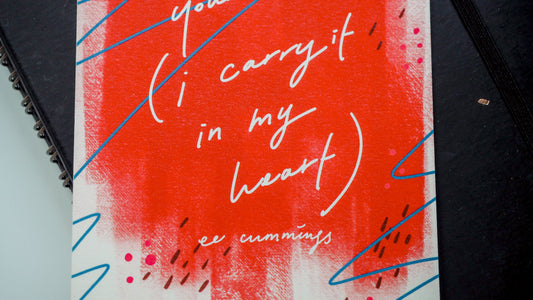 you
(i carry it
in my
heart)
ee cummings